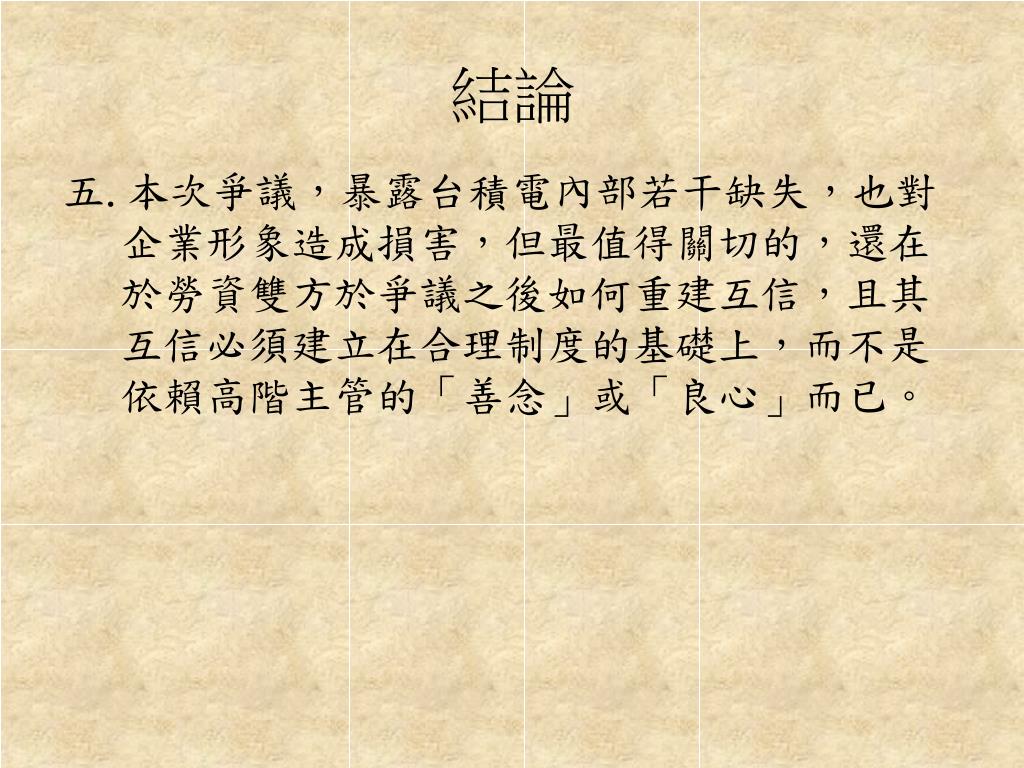 結論
五. 本次爭議，暴露台積電內部若干缺失，也對
企業形象造成損害，但最值得關切的，還在
於勞資雙方於爭議之後如何重建互信，且其
互信必須建立在合理制度的基礎上，而不是
依賴高階主管的「善念」或「良心」而已。